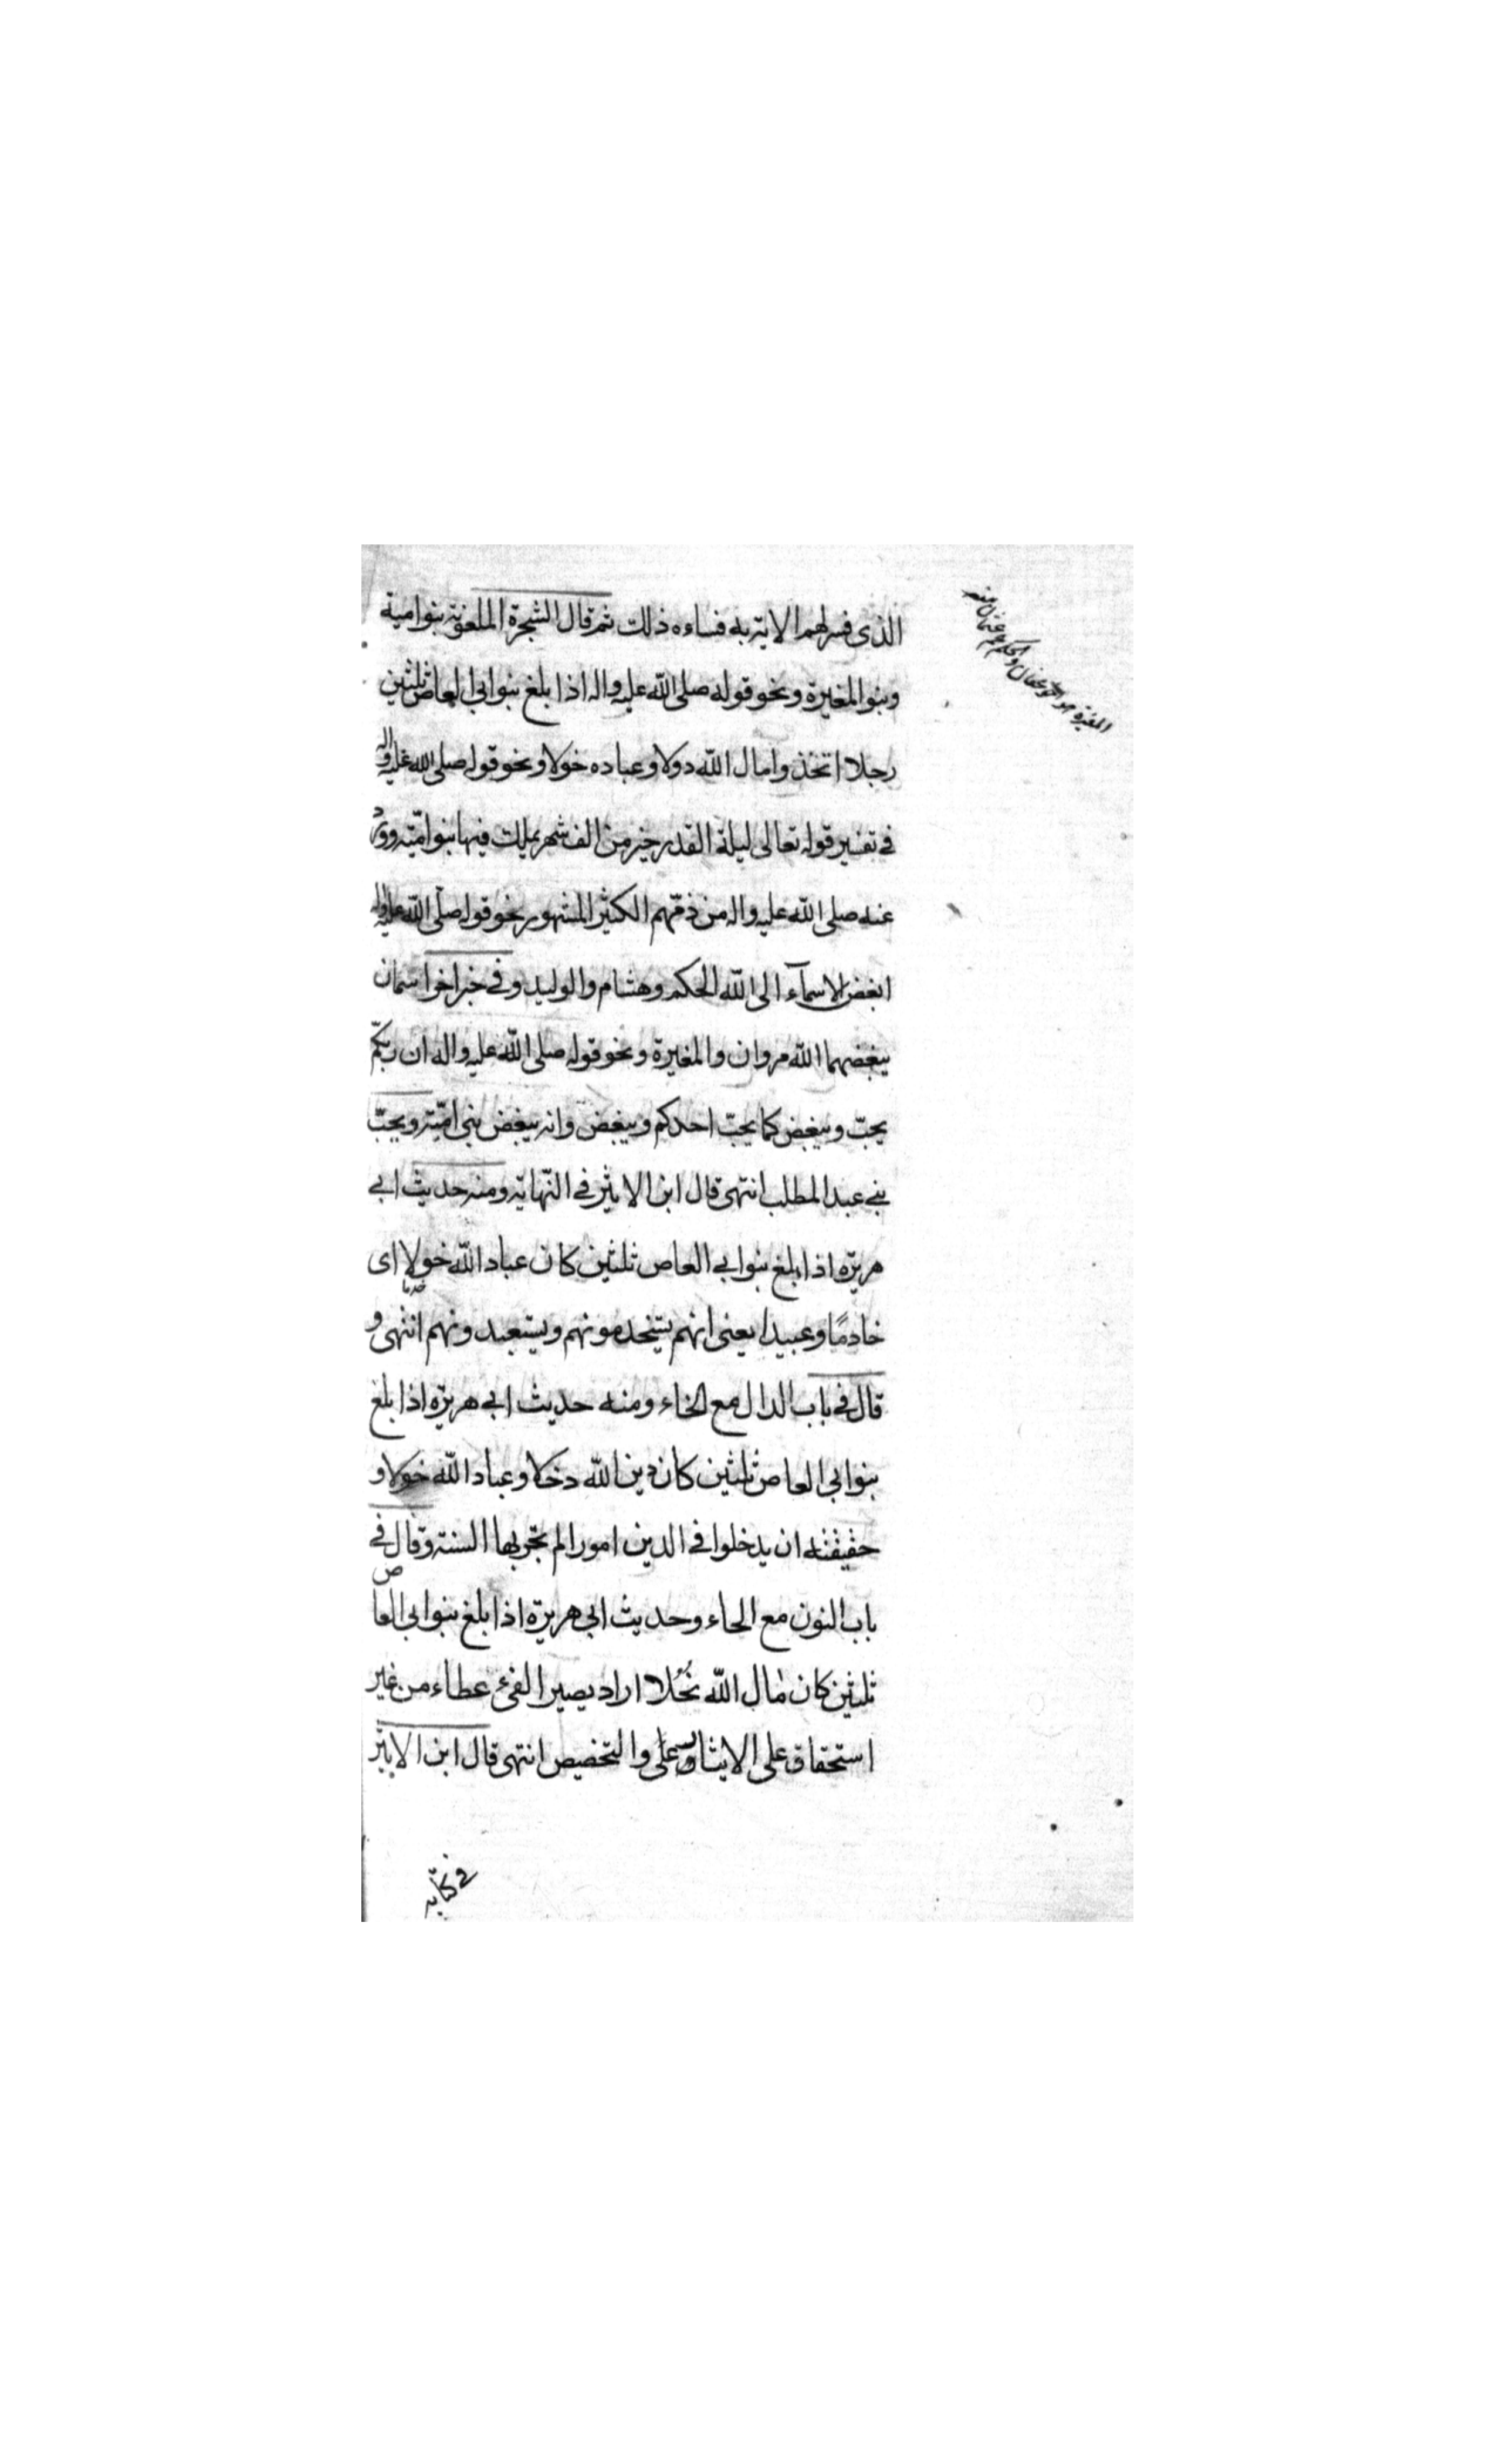 الذى فسر لهم الاية به فساءه ذلك ثم قال الشجرة الملعونة بنوامية
وبنو المغيرة ونحو قوله صلى الله عليه واله اذا بلغ بنوابى العاص ثلثين
رجلا اتخذوا مال الله دولا وعباده خولا ونحو قوله صلى الله عليه واله
فى تفسير قوله تعالى ليلة القدر خير من الف شهر يملك فيها بنوامّية وورد
عنه صلى الله عليه واله من ذمّهم الكثير المشهور نحو قوله صلّى اللّه عليه واله
ابغض الاسمآء الى اللّه الحكم وهشام والوليد وفى خبر اخر اسمان
يبغضهما اللّه مروان والمغيرة ونحو قوله صلى اللّه عليه واله ان ربّكم
يحبّ ويبغض كما يحبّ احدكم ويبغض وانه يبغض بنى اميّة ويحبّ
بنى عبد المطلب انتهى قال ابن الاثير فى النّهاية ومنه حديث ابى
هريرة اذا بلغ بنوابى العاص ثلثين كان عباد اللّه خولا اى
خدما
خادمًا وعبيدا يعنى انهم يستخدمونهم ويستعبدونهم انتهى و
قال فى باب الدال مع الخاء ومنه حديث ابى هريرة اذا بلغ
بنوابى العاص ثلثين كان دين اللّه دخلا وعباد اللّه خولا و
حقيقته ان يدخلوا فى الدين امورا لم تجر بها السنة وقال فى
باب النون مع الحاء وحديث ابى هريرة اذا بلغ بنوابى العاص
ثلثين كان مال اللّه نُحُلا اراد يصير الفئ عطاء من غير
استحقاق على الايثار والتخصيص انتهى قال ابن الاثير
فى كتابه
المغيرة هو عفان والحكم عم عثمان منه